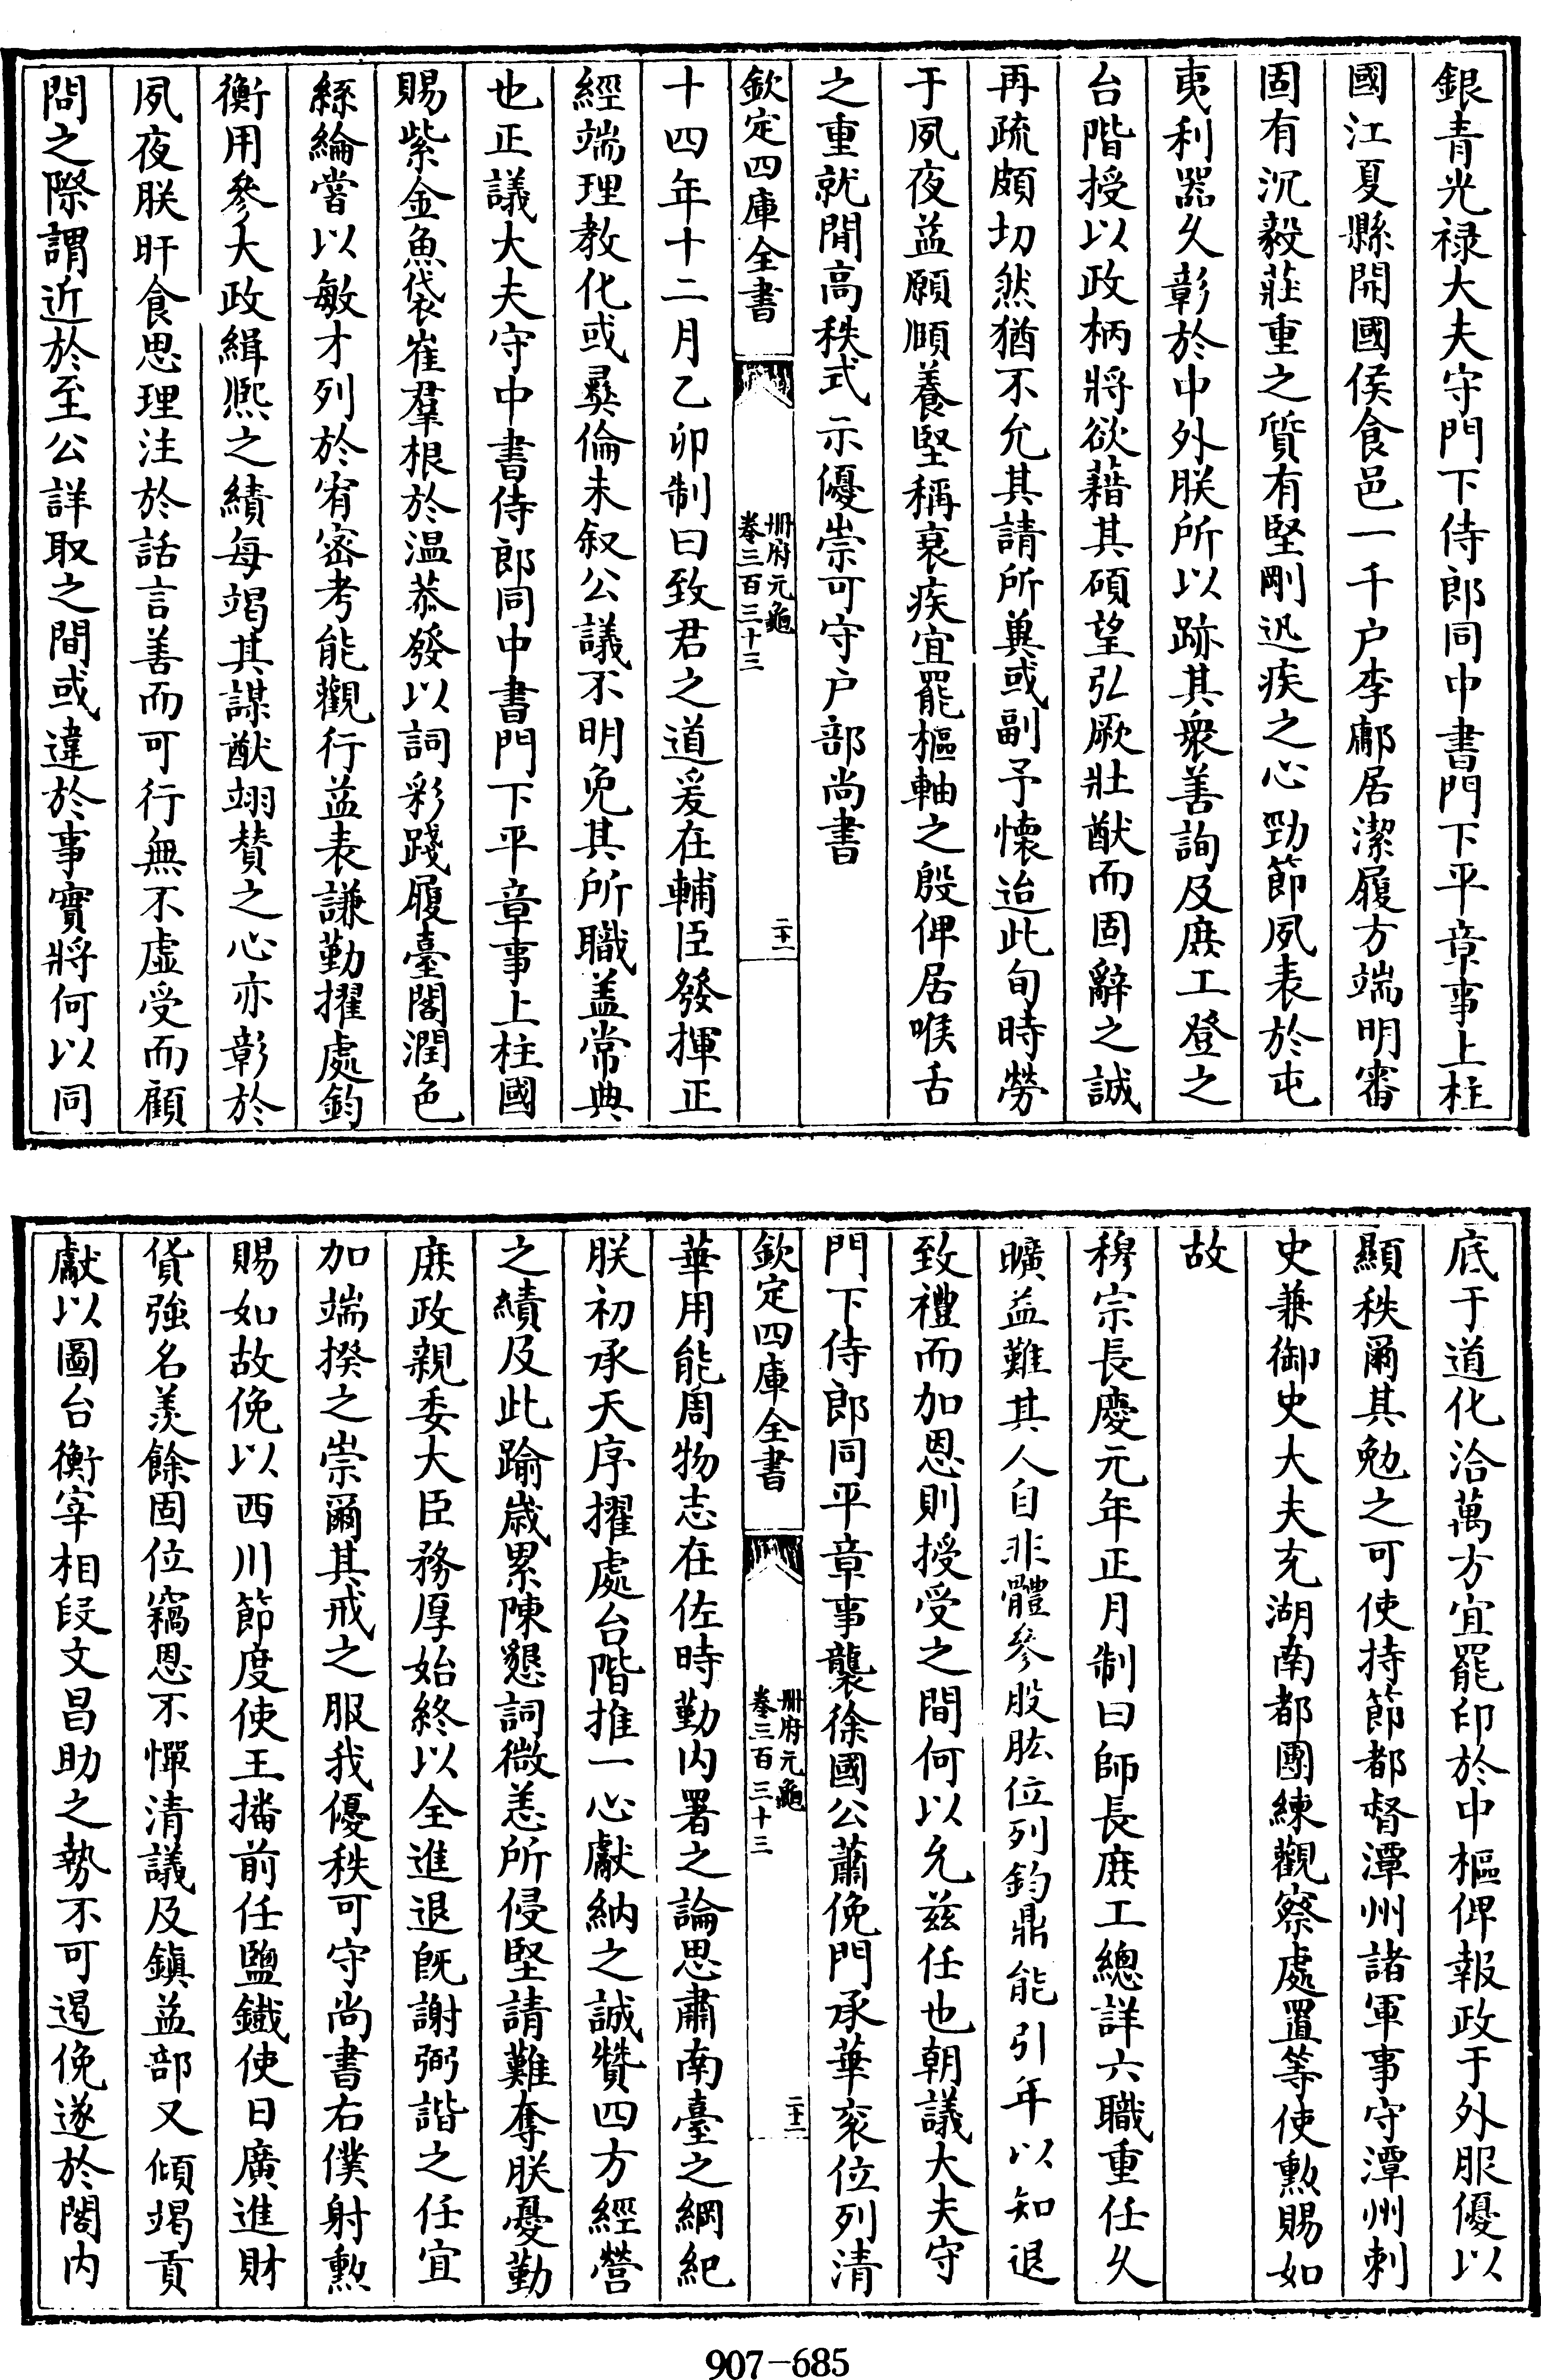 銀青光禄大夫守門下侍郎同中書門下平章事上柱
國江夏縣開國侯食邑一千户李鄘居潔履方端明審
固有沉毅莊重之質有堅剛迅疾之心勁節夙表於屯
夷利器久彰於中外朕所以跡其衆善詢及庶工登之
台階授以政柄將欲藉其碩望弘厥壯猷而固辭之誠
再疏頗切然猶不允其請所兾或副予懷迨此旬時勞
于夙夜益願頤養堅稱衰疾宜罷樞軸之殷俾居喉舌
之重就閒高秩式示優崇可守户部尚書
欽定四庫全書
冊府元龜
卷三百三十三
二十一
十四年十二月乙卯制曰致君之道爰在輔臣發揮正
經端理教化或彛倫未叙公議不明免其所職盖常典
也正議大夫守中書侍郎同中書門下平章事上柱國
賜紫金魚袋崔羣根於温恭發以詞彩踐履臺閣潤色
絲綸嘗以敏才列於宥密考能觀行益表謙勤擢處鈞
衡用參大政緝熈之績每竭其謀猷翊賛之心亦彰於
夙夜朕旰食思理注於話言善而可行無不虚受而顧
問之際謂近於至公詳取之間或違於事實將何以同
底于道化洽萬方宜罷印於中樞俾報政于外服優以
顯秩爾其勉之可使持節都督潭州諸軍事守潭州刺
史兼御史大夫充湖南都團練觀察處置等使勲賜如
故
穆宗長慶元年正月制曰師長庶工總詳六職重任久
曠益難其人自非體參股肱位列鈞鼎能引年以知退
致禮而加恩則授受之間何以允兹任也朝議大夫守
門下侍郎同平章事襲徐國公蕭俛門承華衮位列清
欽定四庫全書
冊府元龜
卷三百三十三
二十二
華用能周物志在佐時勤内署之論思肅南臺之綱紀
朕初承天序擢處台階推一心獻納之誠贊四方經營
之績及此踰歲累陳懇詞微恙所侵堅請難奪朕憂勤
庶政親委大臣務厚始終以全進退既謝弼諧之任宜
加端揆之崇爾其戒之服我優秩可守尚書右僕射勲
賜如故俛以西川節度使王播前任鹽鐵使日廣進財
貨強名羡餘固位竊恩不憚清議及鎮益部又傾竭貢
獻以圖台衡宰相叚文昌助之勢不可遏俛遂於閤内
907-685